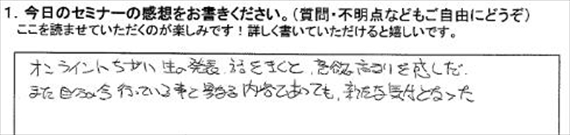 1. 今日のセミナーの感想をお書きください。(質問・不明点などもご自由にどうぞ)
ここを読ませていただくのが楽しみです！詳しく書いていただけると嬉しいです。
オンラインとちがい 生の発表、話をきくと、意欲の高まりを感じた。
また自分が今行っている事と異なる内容であっても、新たな気付となった